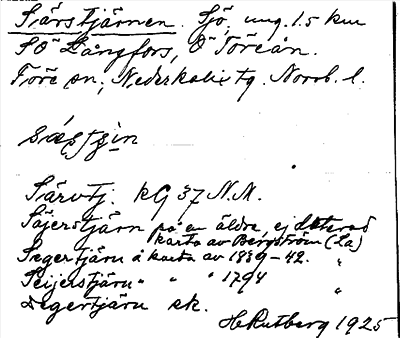 Särstjärnen. Sjö, ung. 1.5 km
SÖ Långfors, Ö Töreån.
Töre sn, Nederkalix tg. Norrb. l.
Särvtj. kG 37 N.M.
Säjerstjärn på en äldre, ej daterad
karta av Bergström (La)
Segertjärn å karta av 1839-42. "
Seijerstjärn " " " 1794 "
Degertjärn ek.
H Rutberg 1925